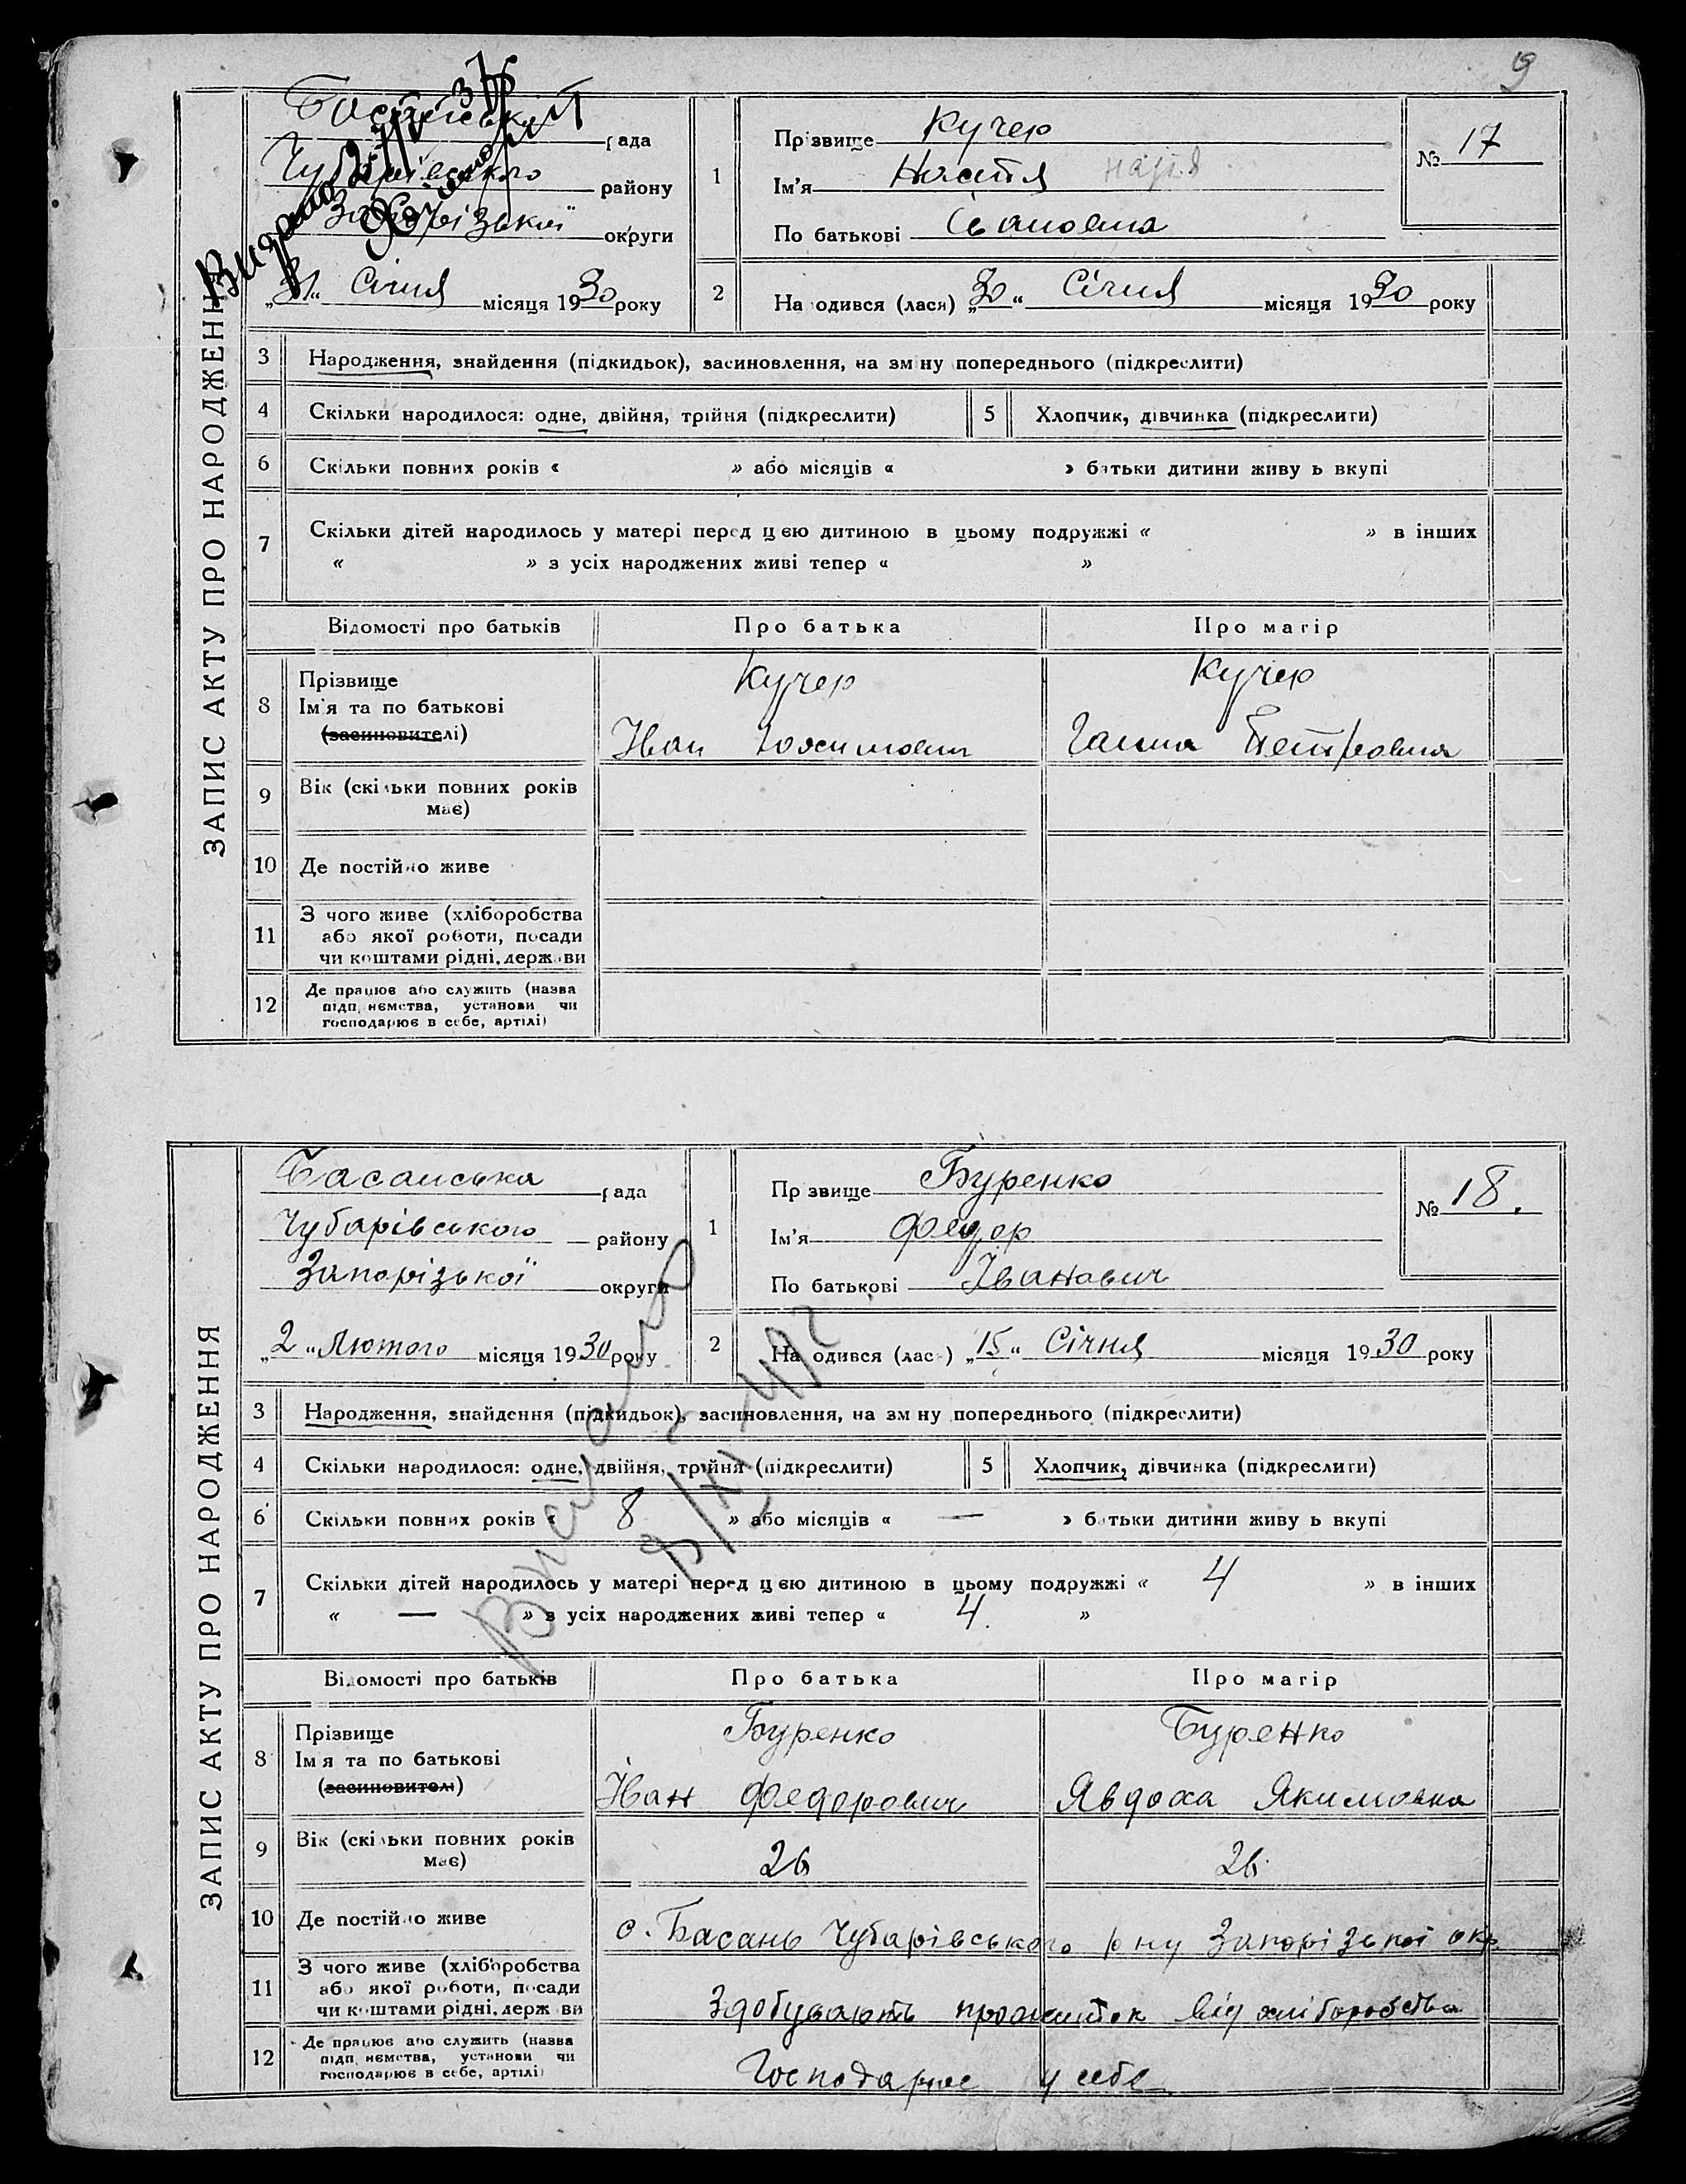 9
ЗАПИС АКТУ ПРО НАРОДЖЕННЯ
Басанська рада
Чубарівського району
Запорізької округи
„31“ Січня місяця 1930 року
Видано
1
Прізвище Кучер
Ім'я Настя Надія
По батькові Івановна
№ 17
2
Народився (лася) „30“ Січня місяця 1930 року
3 Народження, знайдення (підкидьок), засиновлення, на зміну попереднього (підкреслити)
4 Скільки народилося: одне, двійня, трійня (підкреслити)
5 Хлопчик, дівчинка (підкреслити)
6 Скільки повних років « » або місяців « » батьки дитини живуть вкупі
7 Скільки дітей народилось у матері перед цією дитиною в цьому подружжі « » в інших
« » з усіх народжених живі тепер « »
Відомості про батьків Про батька Про матір
8 Прізвище Кучер Кучер
Ім'я та по батькові
(засиновителі) Іван Ганна Петровна
9 Вік (скільки повних років
має)
10 Де постійно живе
11 З чого живе (хліборобства
або якої роботи, посади
чи коштами рідні, держави
12 Де працює або служить (назва
підприємства, установи чи
господарює в себе, артілі)
ЗАПИС АКТУ ПРО НАРОДЖЕННЯ
Басанська рада
Чубарівського району
Запорізької округи
„2“ Лютого місяця 1930 року
1
Прізвище Буренко
Ім'я Федор
По батькові Іванович
№ 18.
2
Народився (лася) „15“ Січня місяця 1930 року
Видано
3 Народження, знайдення (підкидьок), засиновлення, на зміну попереднього (підкреслити)
4 Скільки народилося: одне, двійня, трійня (підкреслити)
5 Хлопчик, дівчинка (підкреслити)
6 Скільки повних років « 8 » або місяців « — » батьки дитини живуть вкупі
7 Скільки дітей народилось у матері перед цією дитиною в цьому подружжі « 4 » в інших
« — » з усіх народжених живі тепер « 4. »
Відомості про батьків Про батька Про матір
8 Прізвище Буренко Буренко
Ім'я та по батькові
(засиновителі) Іван Федорович Явдоха Якимовна
9 Вік (скільки повних років 26 26
має)
10 Де постійно живе с. Басань Чубарівського р ну Запорізької окр
11 З чого живе (хліборобства
або якої роботи, посади
чи коштами рідні, держави Здобувають прожиток від хліборобства
12 Де працює або служить (назва
підприємства, установи чи
господарює в себе, артілі) Господарює у себе